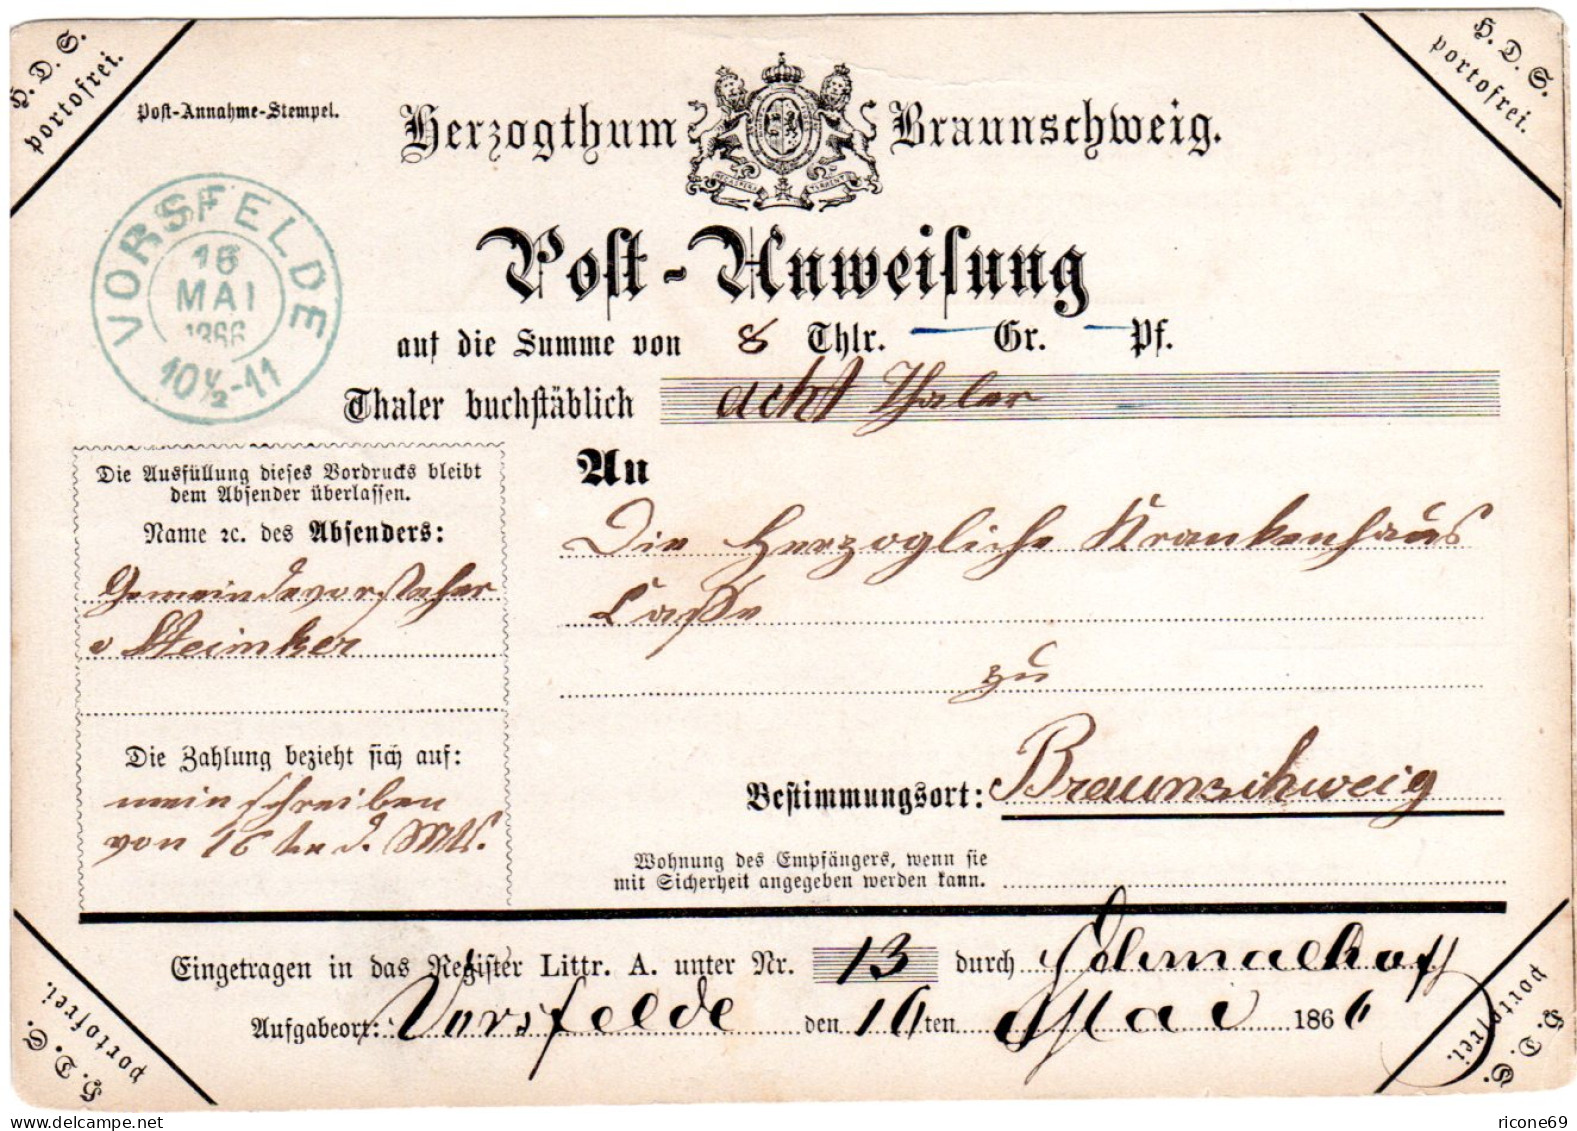 H. D. S.
portofrei.
H. D. S.
portofrei.
Post-Annahme-Stempel.
Herzogthum Braunschweig.
VORSFELDE
16
MAI
1866
10½-11
Post-Anweisung
auf die Summe von 8 Thlr. — Gr. — Pf.
Thaler buchstäblich acht Thaler
Die Ausfüllung dieses Vordrucks bleibt
dem Absender überlassen.
Name ꝛc. des Absenders:
Gemeindevorsteher
Steimker
Die Zahlung bezieht sich auf:
mein schreiben
von 16 ten d. Mts.
An
Die Herzogliche Krankenhaus
Casse
zu
Bestimmungsort: Braunschweig
Wohnung des Empfängers, wenn sie
mit Sicherheit angegeben werden kann.
Eingetragen in das Register Littr. A. unter Nr. 13 durch
Aufgabeort: Vorsfelde den 16ten Mai 1866
H. D. S.
portofrei.
H. D. S.
portofrei.
delcampe.net
ricone69